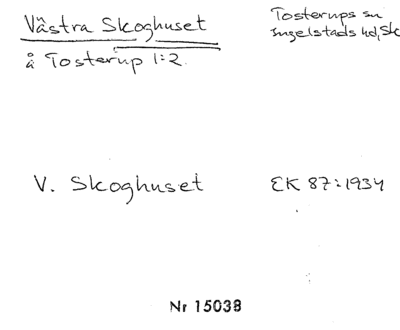 Västra Skoghuset
å Tosterup 1:2.
Tosterups sn
Ingelstads hd, Sk
V. Skoghuset
EK 87:1934
Nr 15038